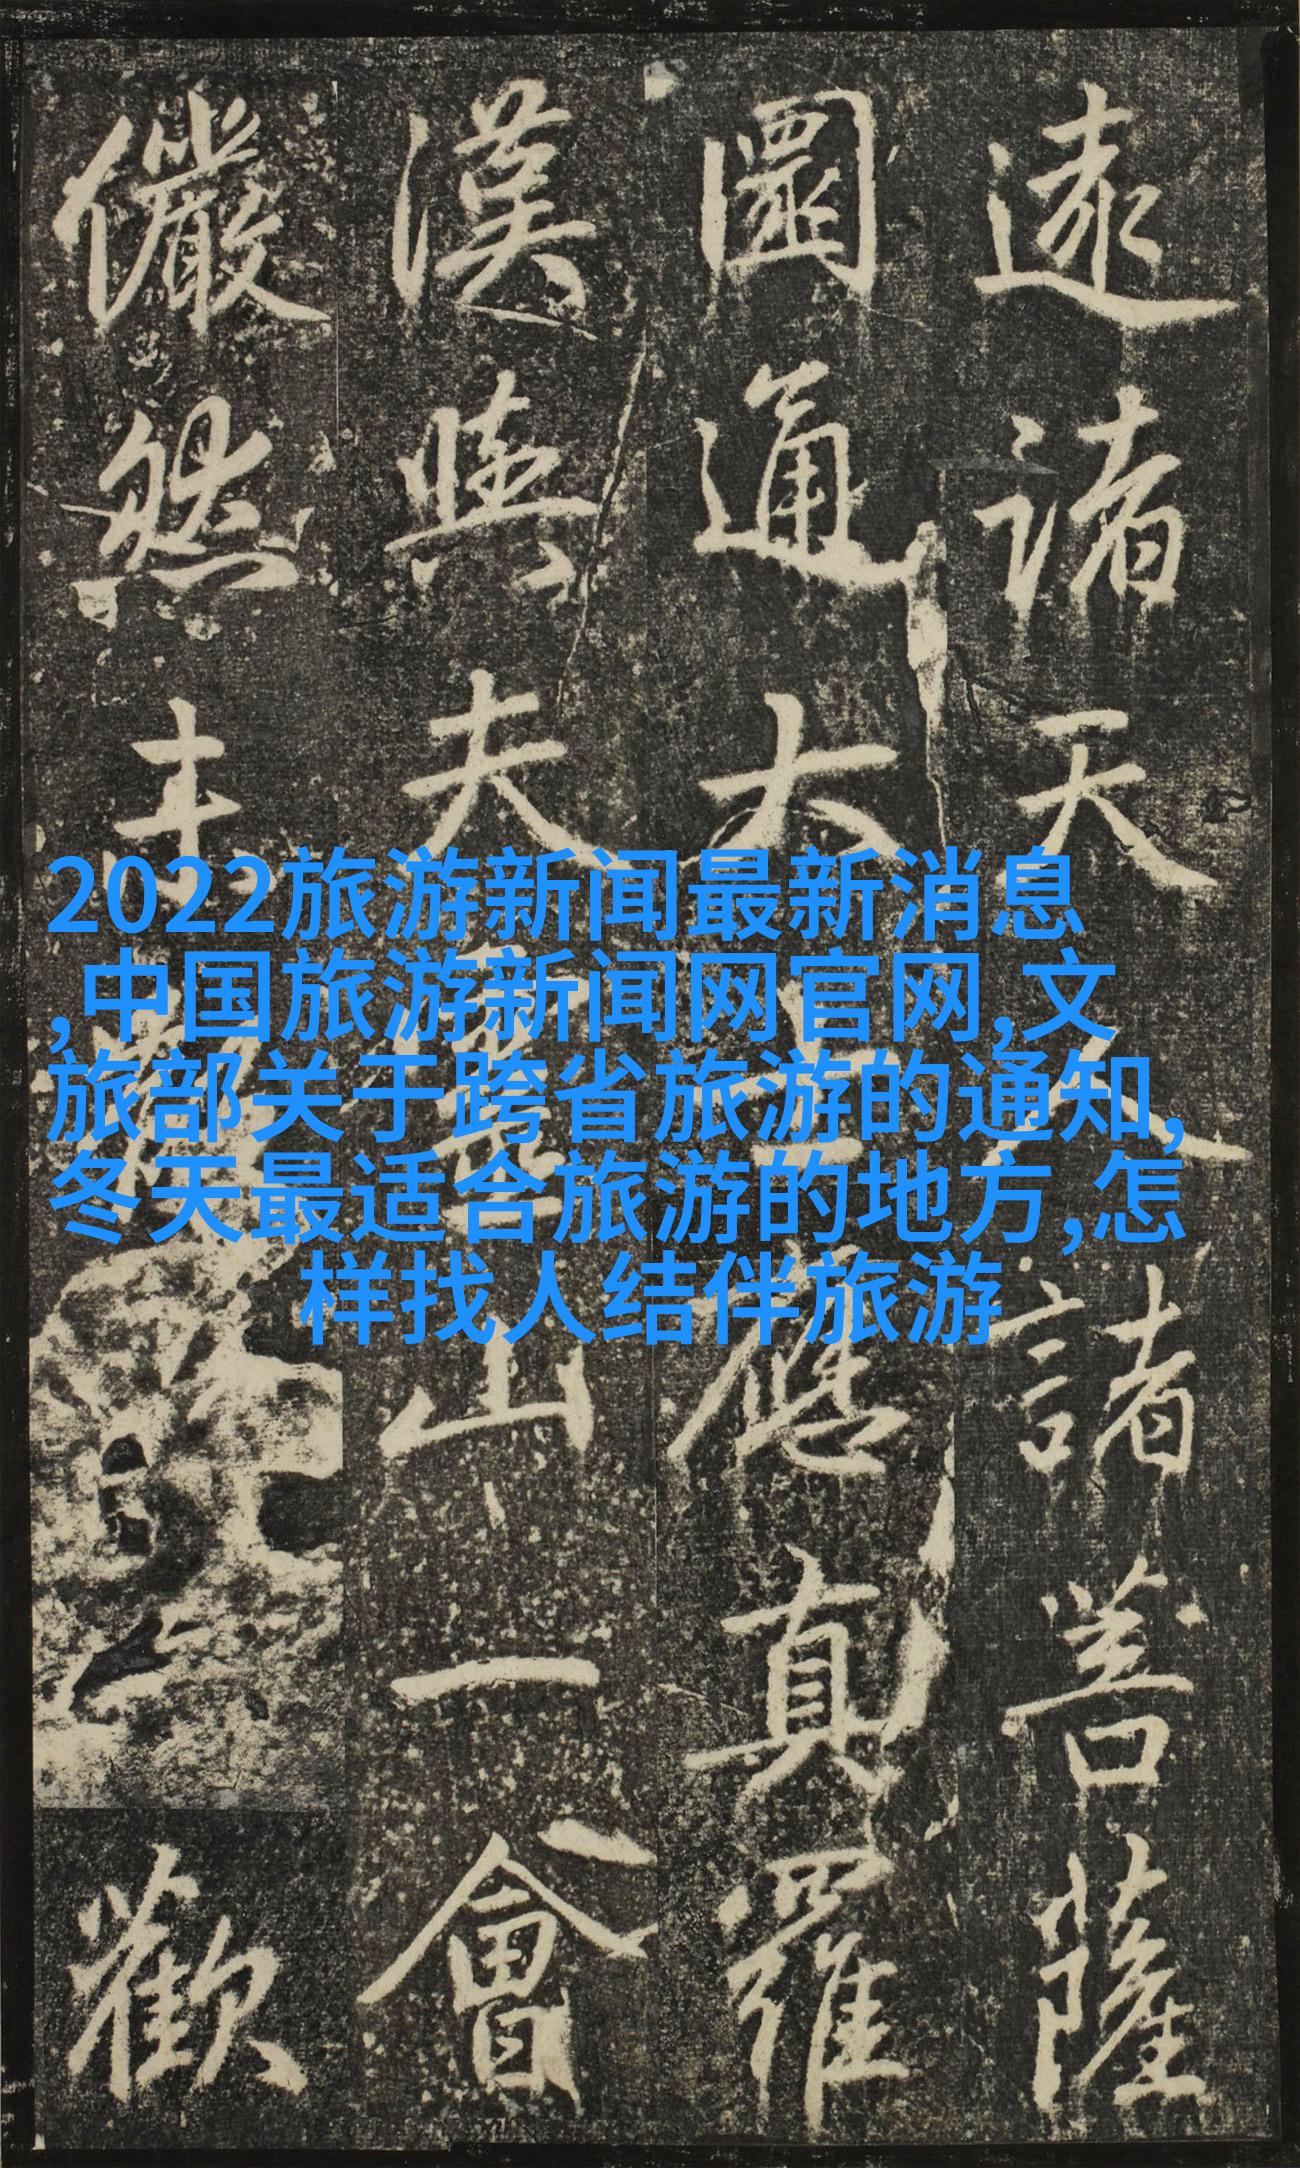 2022旅游新闻最新消息
,中国旅游新闻网官网,文
旅部关于跨省旅游的通知,
冬天最适合旅游的地方,怎
样找人结伴旅游
諸天人諸菩薩
通大士應真羅
漢與夫靈山一會
儼然 歡